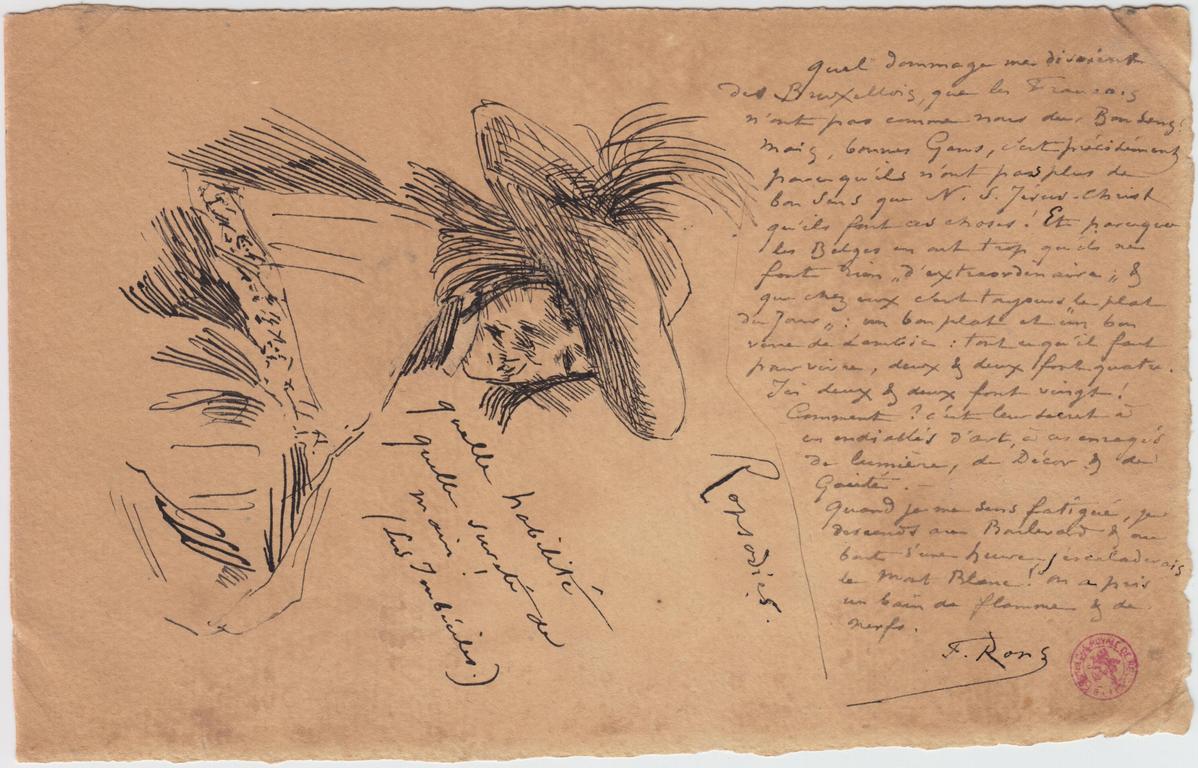 Quel dommage me disaient
des Bruxellois, que les Français
n'ont pas comme nous du Bon Sens,
Mais, bonnes Gens, c'est précisément
parcequ'ils n'ont pas plus de
bon sens que N. S. Jésus-Christ
qu'ils font ces choses! Et parceque
les Belges en ont trop qu'ils ne
font rien „d'extraordinaire„ &
que chez eux c'est toujours „le plat
du Jour„ : un bon plat et un bon
verre de Lambic : tout ce qu'il faut
pour vivre, deux & deux font quatre.
Ici deux & deux font vingt!
Comment? c'est leur secret à
ces endiablés d'art, à ces enragés
de lumière, de Décor & de
Gaieté. —
Quand je me sens fatigué, je
descends au Boulevard & au
bout d'une heure, j'escaladerais
le Mont Blanc! on a pris
un bain de flamme & de
nerfs.
F. Rops
Ropsodies.
quelle habileté
quelle sureté de
main!
(les Imbéciles.)